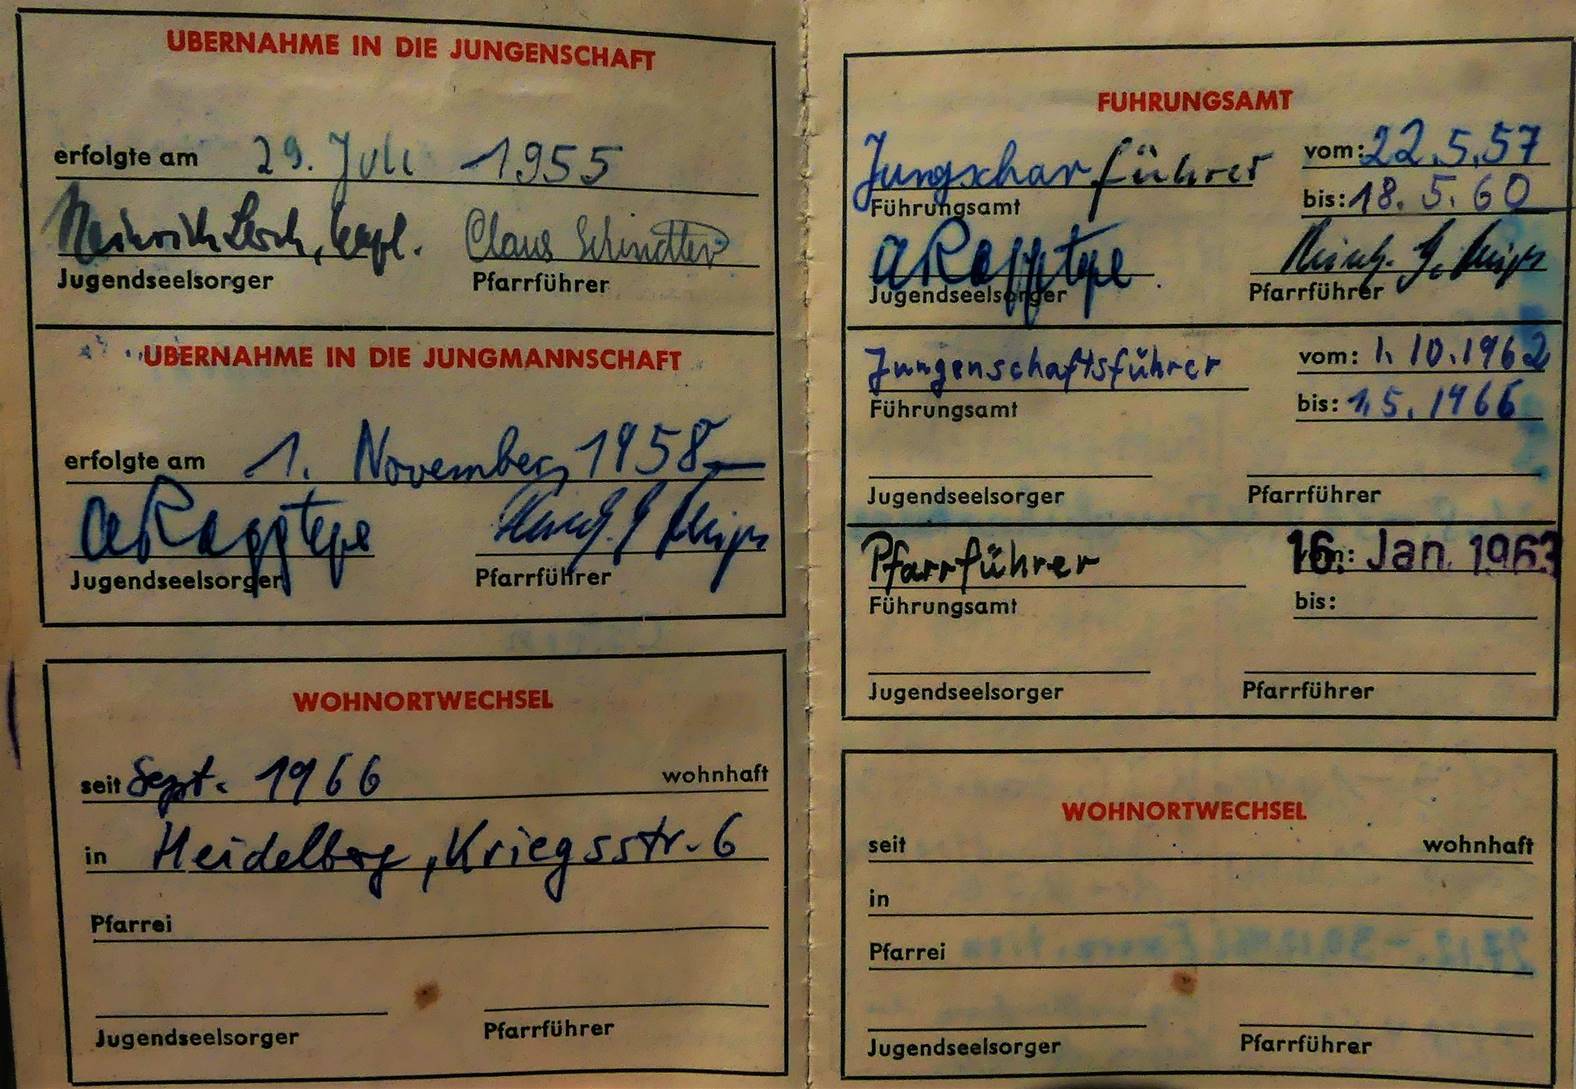 UBERNAHME IN DIE JUNGENSCHAFT
erfolgte am 29. Juli 1955
Heinrich Lerch, Kapl. Claus Schindler
Jugendseelsorger Pfarrführer
UBERNAHME IN DIE JUNGMANNSCHAFT
erfolgte am 1. November 1958
Jugendseelsorger Pfarrführer
WOHNORTWECHSEL
seit Sept. 1966 wohnhaft
in Heidelberg, Kriegsstr. 6
Pfarrei
Jugendseelsorger Pfarrführer
FUHRUNGSAMT
Jungscharführer vom: 22.5.57
Führungsamt bis: 18.5.60
Jugendseelsorger Pfarrführer
Jungenschaftsführer vom: 1.10.1962
Führungsamt bis: 1.5.1966
Jugendseelsorger Pfarrführer
Pfarrführer 16. Jan. 1963
Führungsamt bis:
Jugendseelsorger Pfarrführer
WOHNORTWECHSEL
seit wohnhaft
in
Pfarrei
Jugendseelsorger Pfarrführer